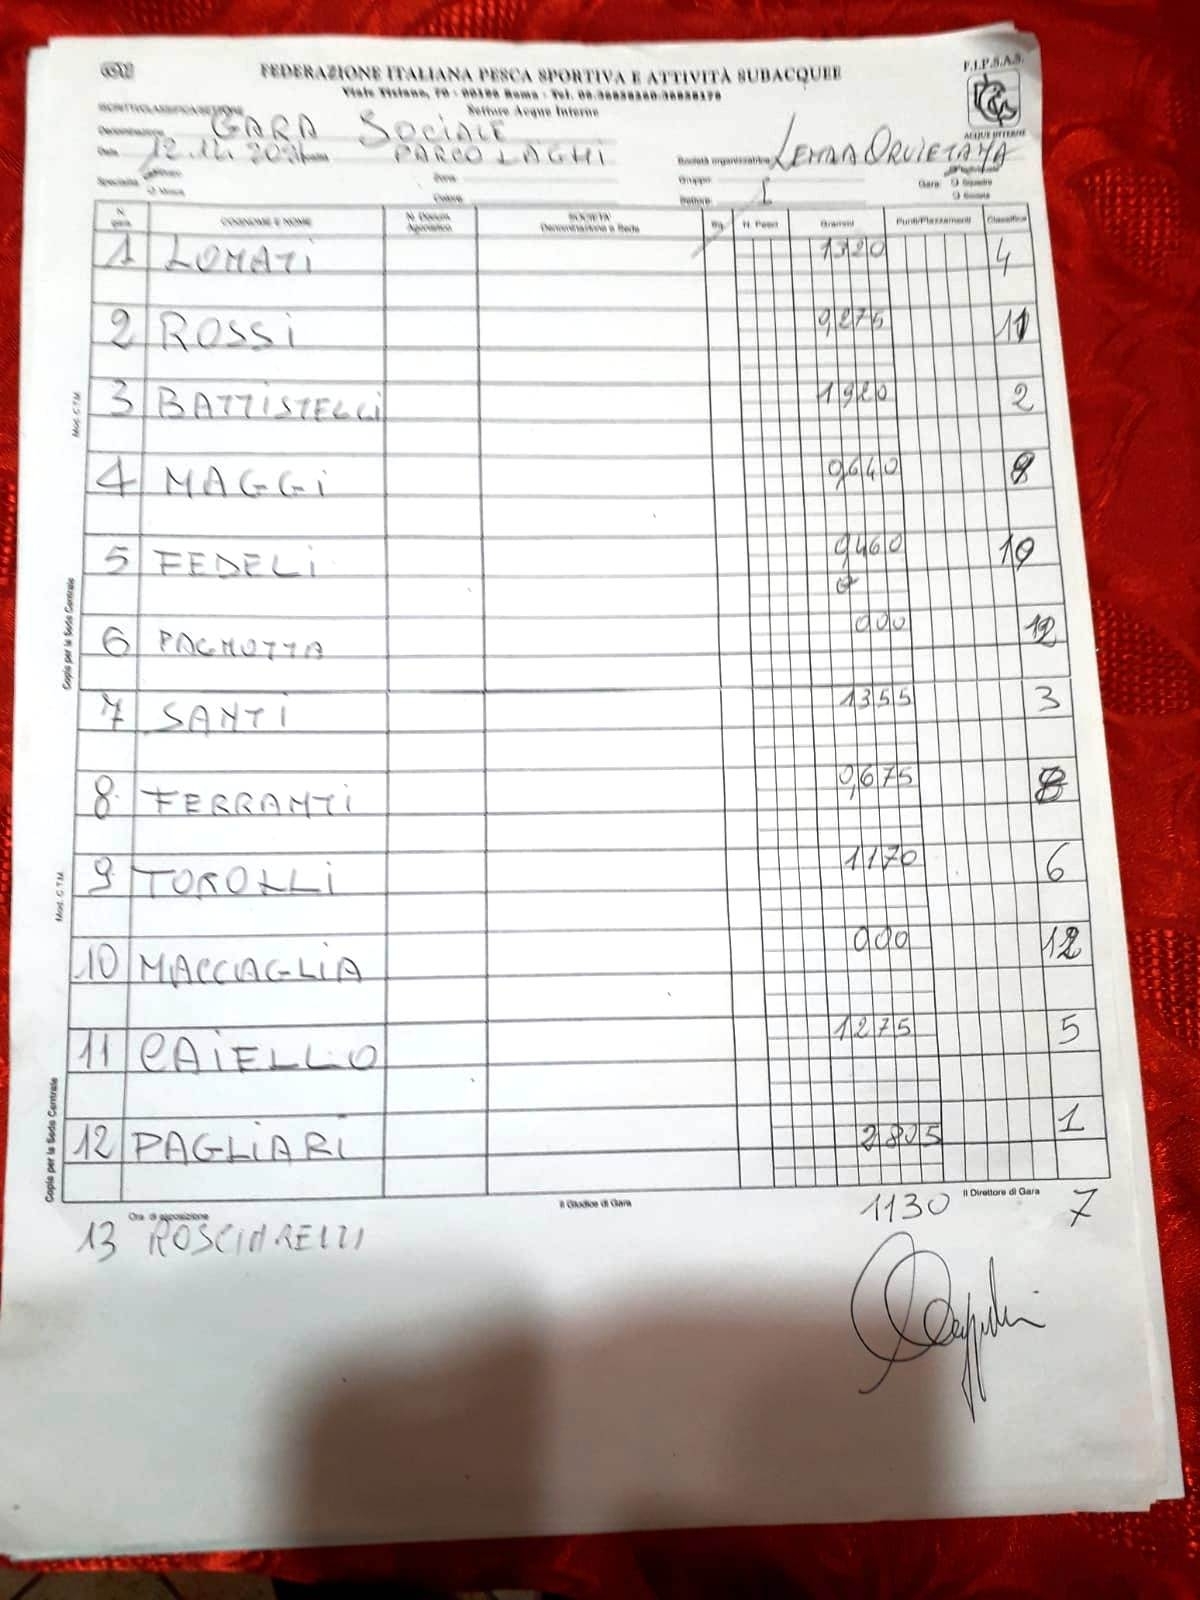 FEDERAZIONE ITALIANA PESCA SPORTIVA E ATTIVITÀ SUBACQUEE
F.I.P.S.A.S.
Viale Tiziano, 70 - 00196 Roma - Tel.
Settore Acque Interne
ACQUE INTERNE
Denominazione GARA SOCIALE
Data PARCO LAGHI
Società organizzatrice ORVIETANA
Specialità
Zona
Gruppo
Gara: Squadre
Settore 1
Società
N. gara COGNOME E NOME SOCIETÀ Denominazione e Sede Sq. N. Pesci Grammi Punti/Piazzamenti Classifica
1 LOMATI 1320 4
2 ROSSI 0,275 11
3 BATTISTELLI 1920 2
4 MAGGI 0,640
5 FEDELI 0,460 10
6 PAGNOTTA 000 12
7 SANTI 1355 3
8 FERRANTI 0,675 8
9 TOROLLI 1170 6
10 MACCAGLIA 000 12
11 CAIELLO 1275 5
12 PAGLIARI 2805 1
Ora di esposizione Il Giudice di Gara Il Direttore di Gara
13 ROSCIARELLI 1130 7
Mod. C.T.M.
Copia per la Sede Centrale
Mod. C.T.M.
Copia per la Sede Centrale